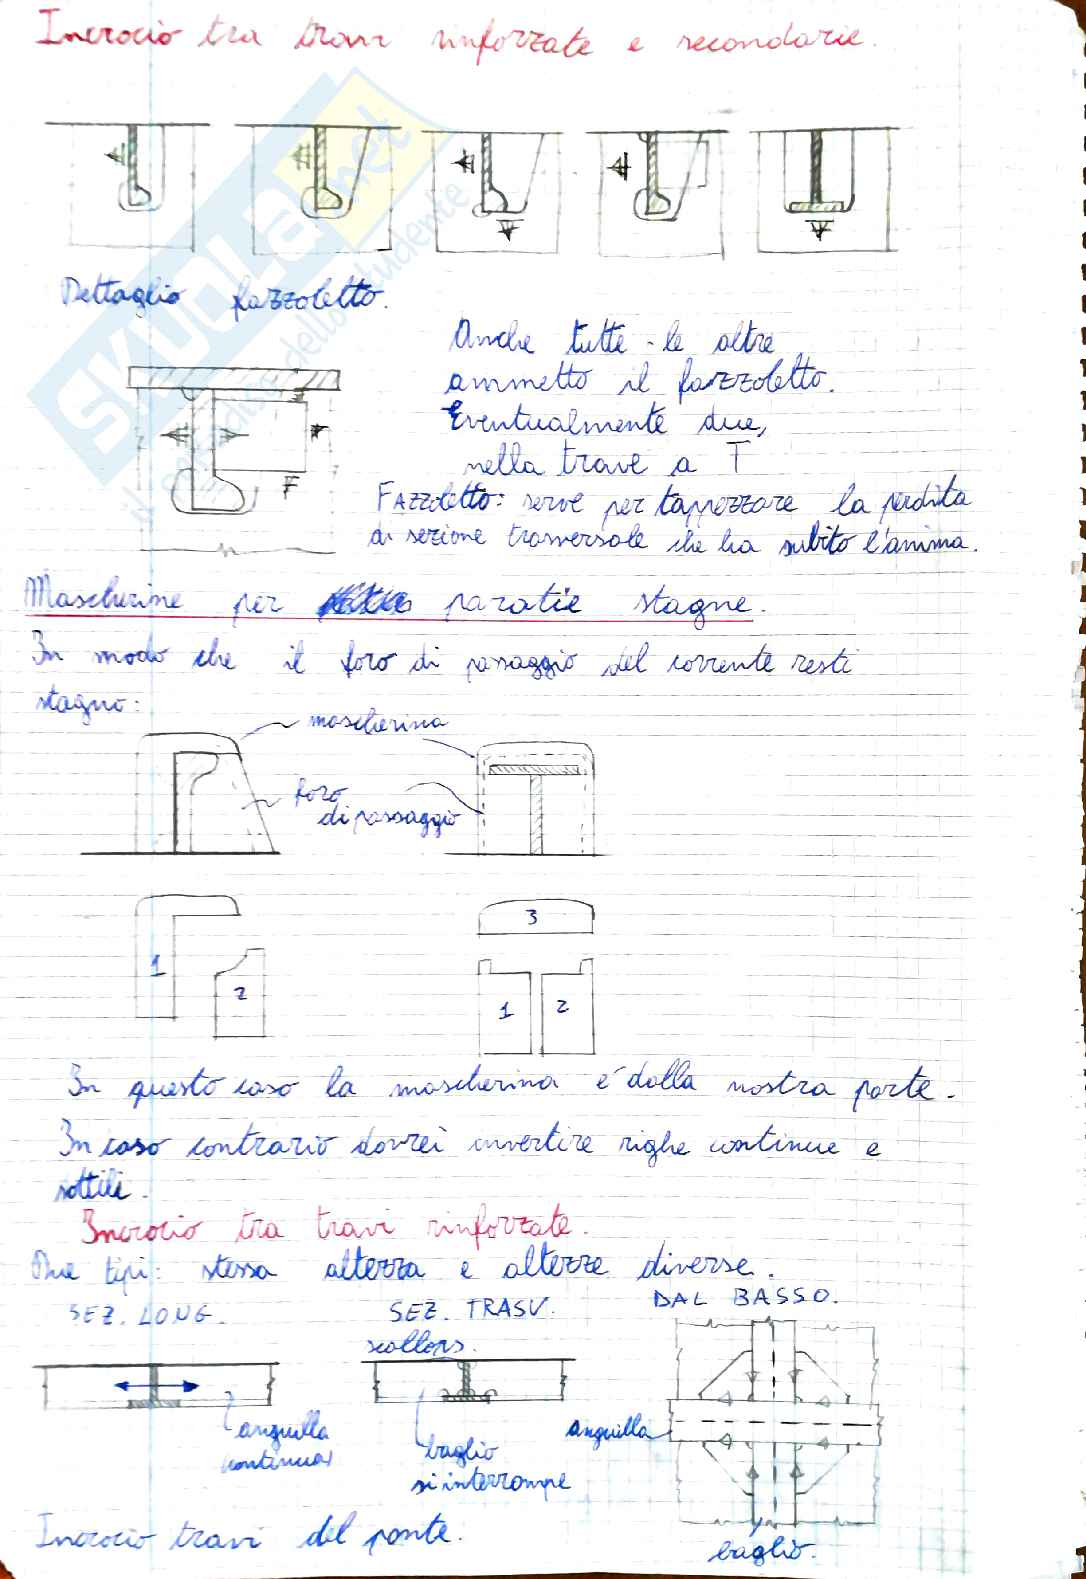 Incrocio tra travi rinforzate e secondarie.
SKUOLA.net
il paradiso dello studente
Dettaglio fazzoletto.
Anche tutte le altre
ammetto il fazzoletto.
Eventualmente due,
nella trave a T
FAZZOLETTO: serve per tappezzare la perdita
di sezione trasversale che ha subito l'anima.
Mascherine per paratie stagne.
In modo che il foro di passaggio del corrente resti
stagno:
mascherina
foro
di passaggio
1
2
3
1
2
In questo caso la mascherina é dalla nostra parte.
In caso contrario dovrei invertire righe continue e
sottili.
Incrocio tra travi rinforzate.
Due tipi: stessa altezza e altezze diverse.
SEZ. LONG.
SEZ. TRASV.
DAL BASSO.
scallops.
anguilla
continua
baglio
si interrompe
anguilla
baglio.
Incrocio travi del ponte.